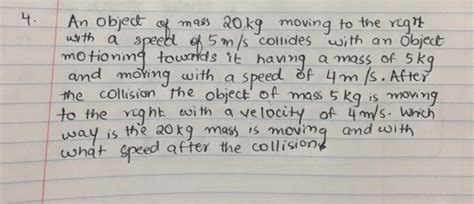 4. An object of mass 20.kg moving to the right
with a speed of 5 m/s collides with an object
motioning towards it having a mass of 5 kg
and moving with a speed of 4 m/s. After
the collision the object of mass 5 kg is moving
to the right with a velocity of 4 m/s. Which
way is the 20 kg mass is moving and with
what speed after the collision.